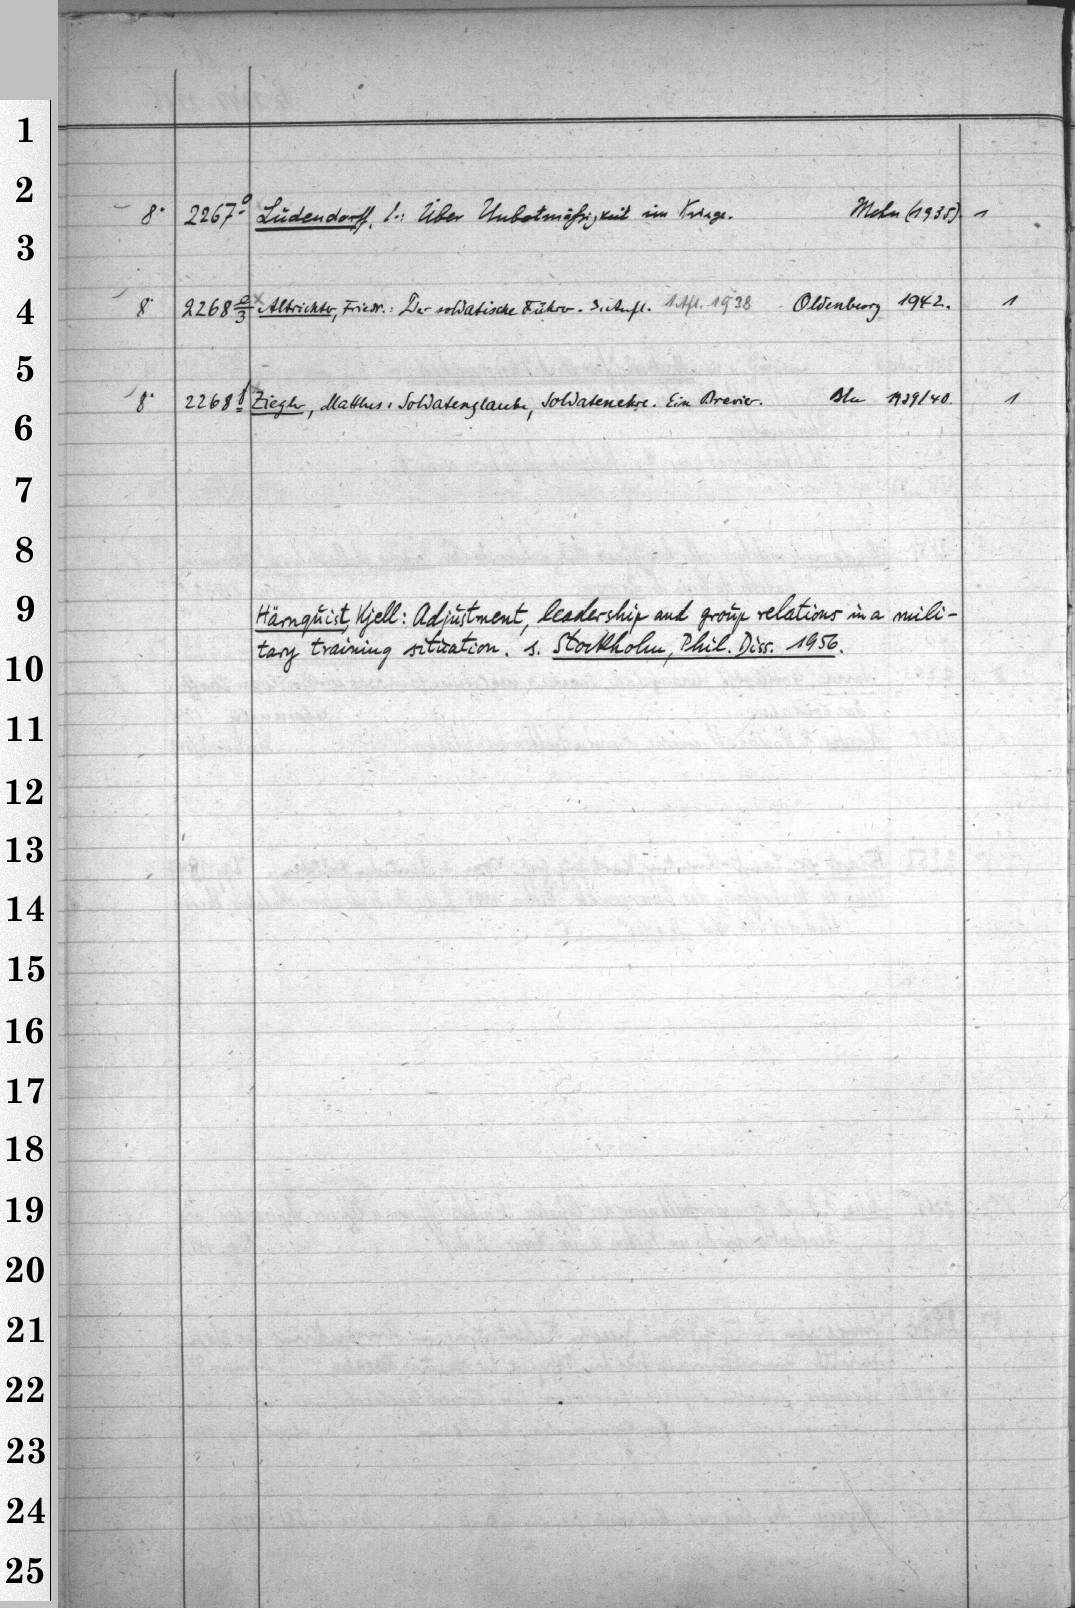 1
2
8° 2267° Ludendorff, E.: Über Unbotmäßigkeit im Kriege. Mchn (1935). 1
3
4
8° 2268 a/3 Altrichter, Friedr.: Der soldatische Führer. 3. Aufl. 1. Afl. 1938 Oldenburg 1942. 1
5
8° 2268 b Ziegler, Matthes: Soldatenglaube, Soldatenehre. Ein Brevier. Bln 1939/40. 1
6
7
8
9
Härnquist, Kjell: Adjustment, leadership and group relations in a mili-
tary training situation. s. Stockholm, Phil. Diss. 1956.
10
11
12
13
14
15
16
17
18
19
20
21
22
23
24
25